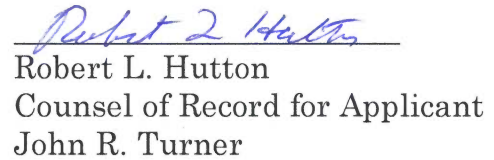 Robert L Hutton
Robert L. Hutton
Counsel of Record for Applicant
John R. Turner